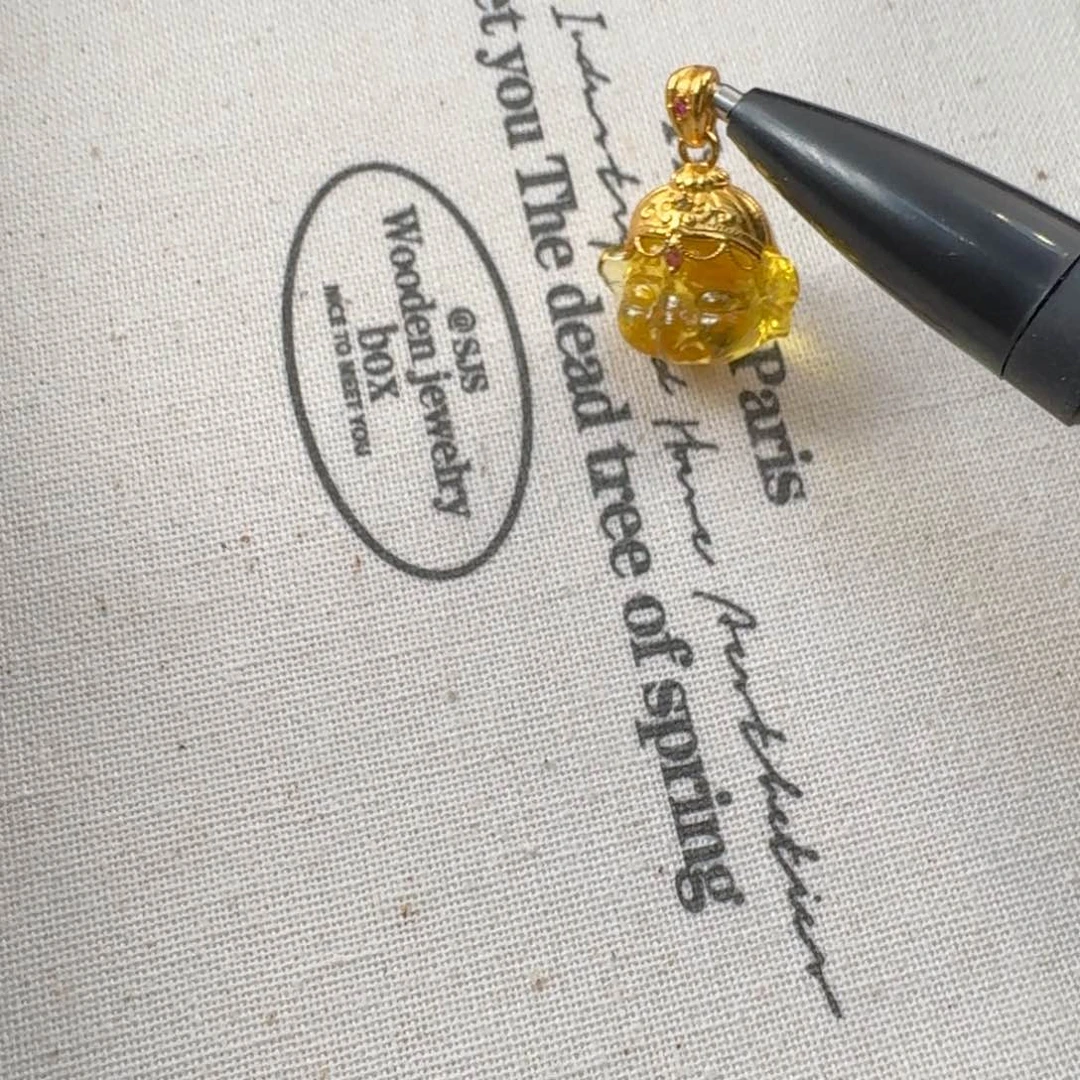 @SJS
Wooden jewelry
box
NICE TO MEET YOU
Paris
Home Aesthetician
you The dead tree of spring